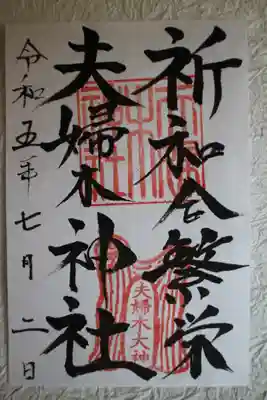 祈和合繁栄
夫婦木神社
令和五年七月二日
夫婦木大神